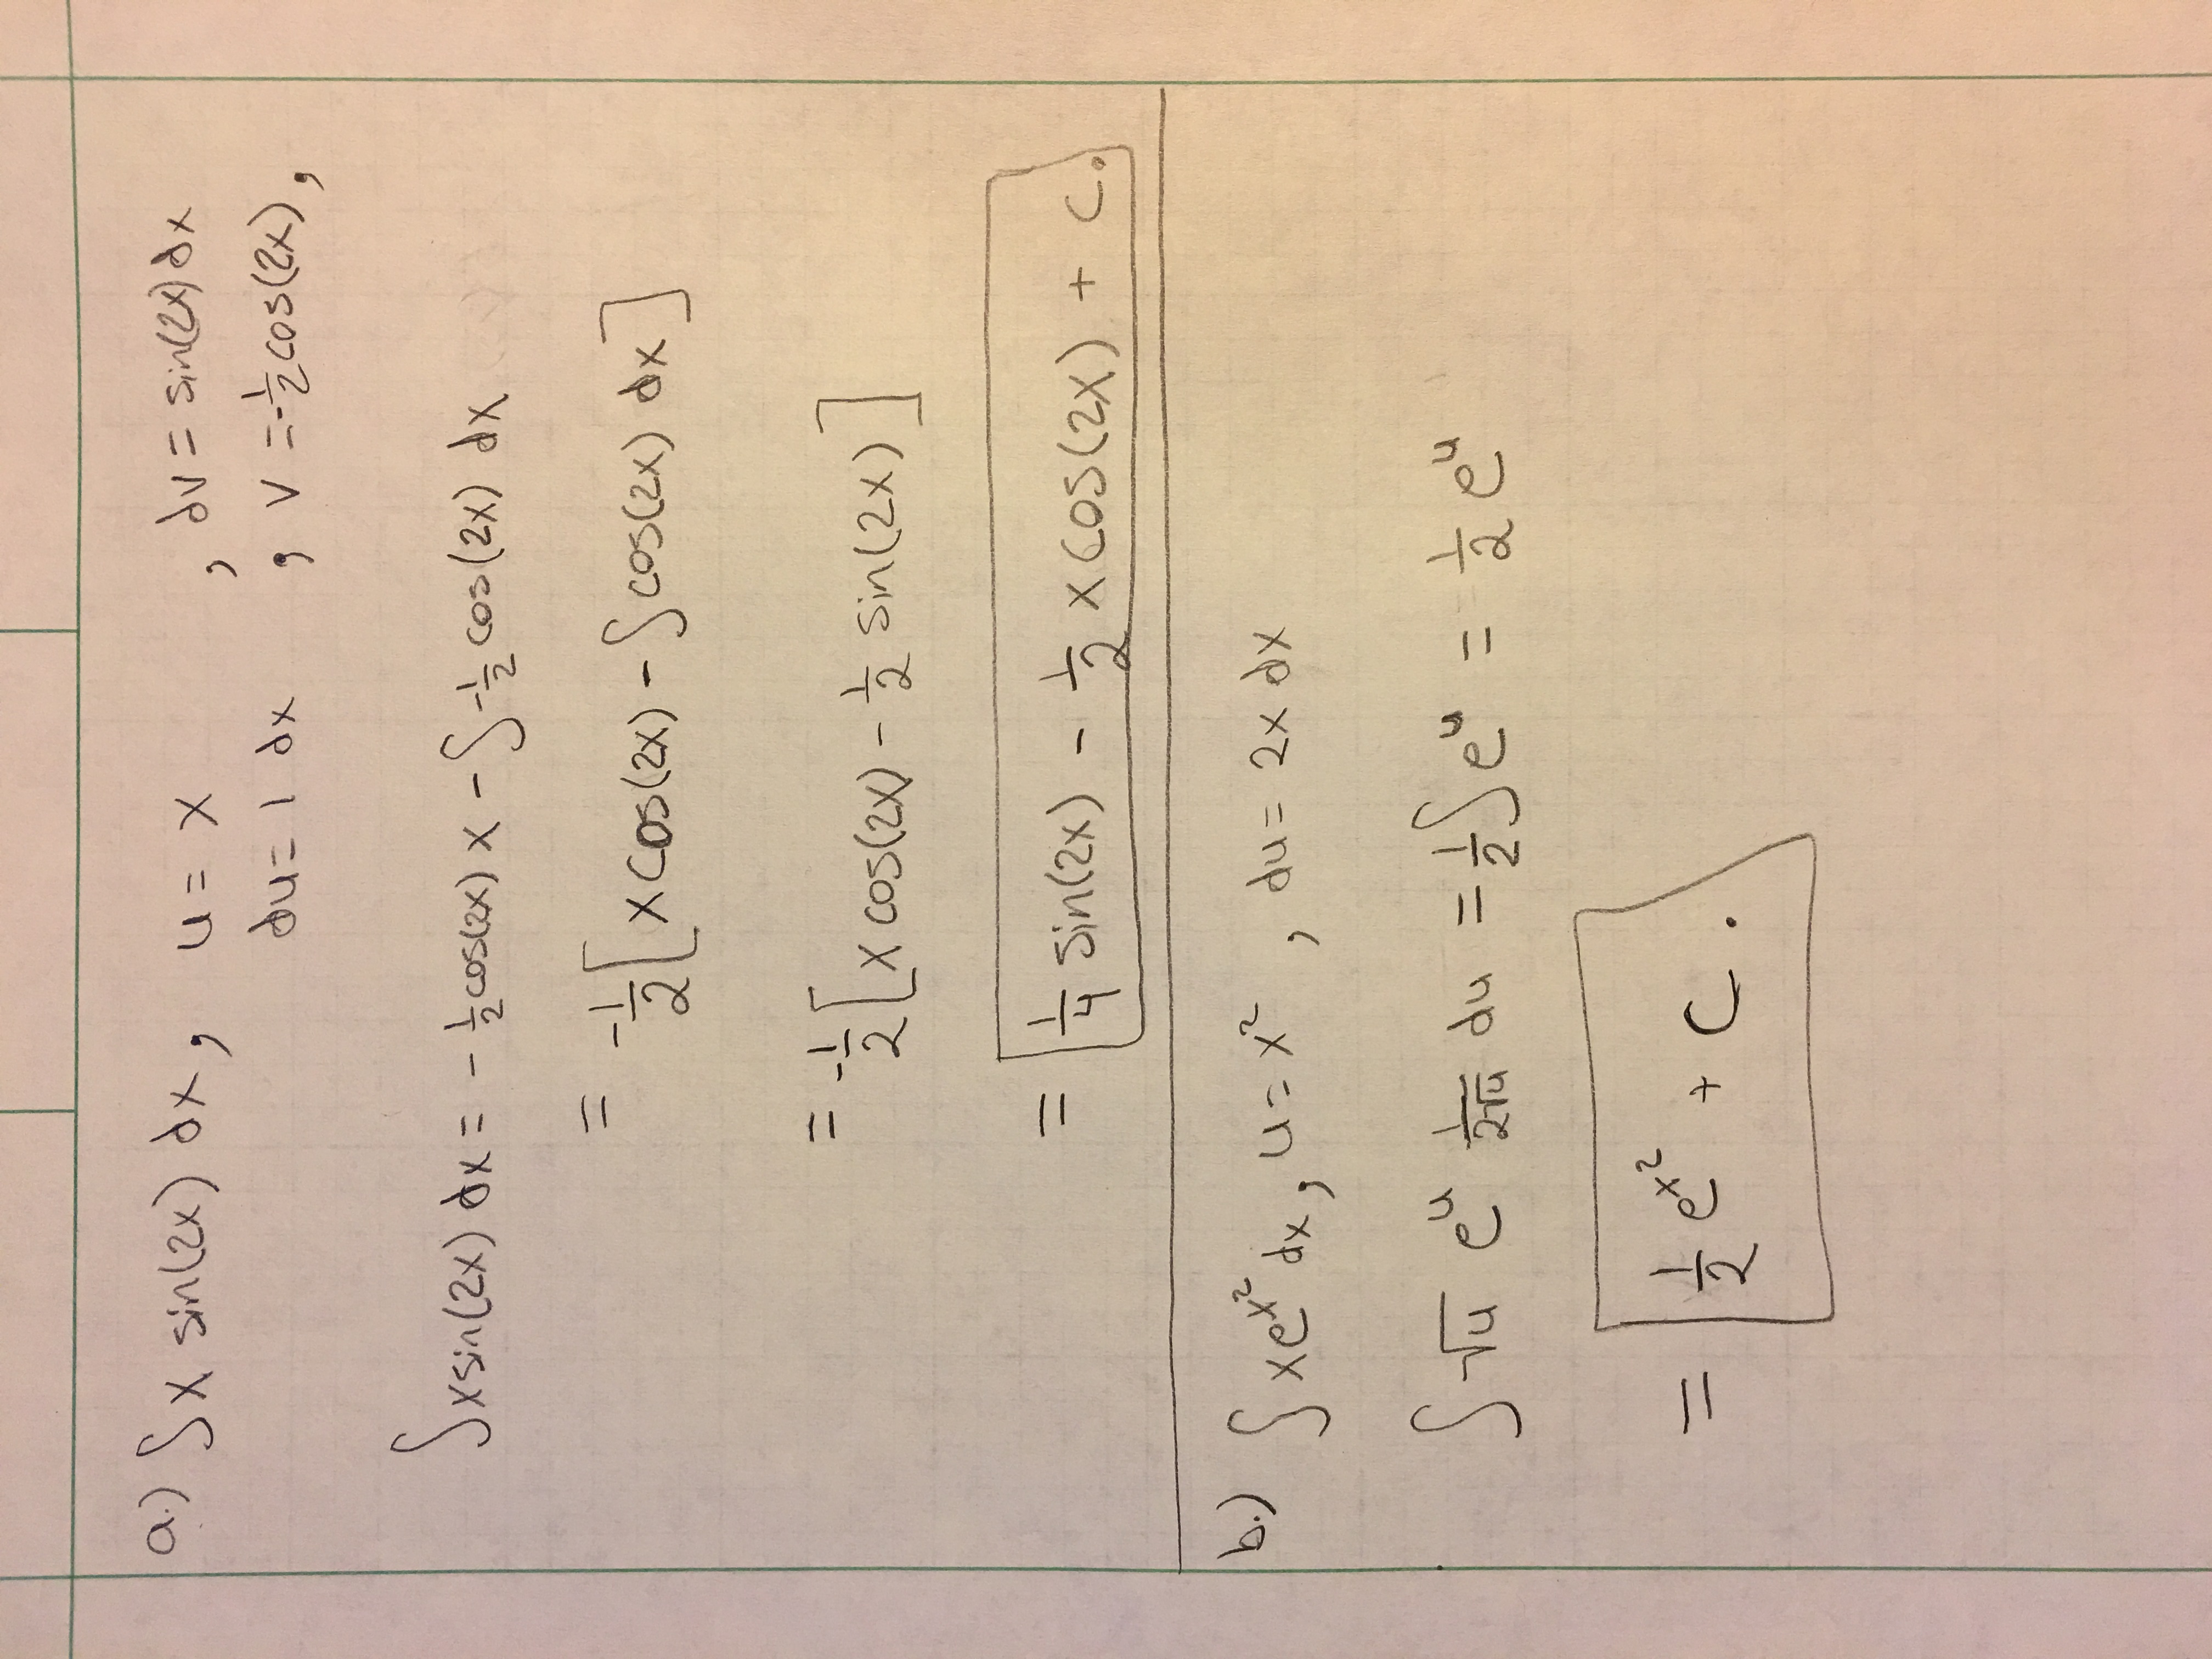 a.) ∫x sin(2x) dx, u = x , dv = sin(2x) dx
du = 1 dx , v = -1/2 cos(2x),
∫x sin(2x) dx = - 1/2 cos(2x) x - ∫ -1/2 cos(2x) dx
= -1/2 [x cos(2x) - ∫cos(2x) dx]
= -1/2 [x cos(2x) - 1/2 sin(2x)]
= 1/4 sin(2x) - 1/2 x cos(2x) + C.
b.) ∫xe^x² dx, u = x² , du = 2x dx
∫ √u e^u 1/(2√u) du = 1/2 ∫e^u = 1/2 e^u
= 1/2 e^x² + C.